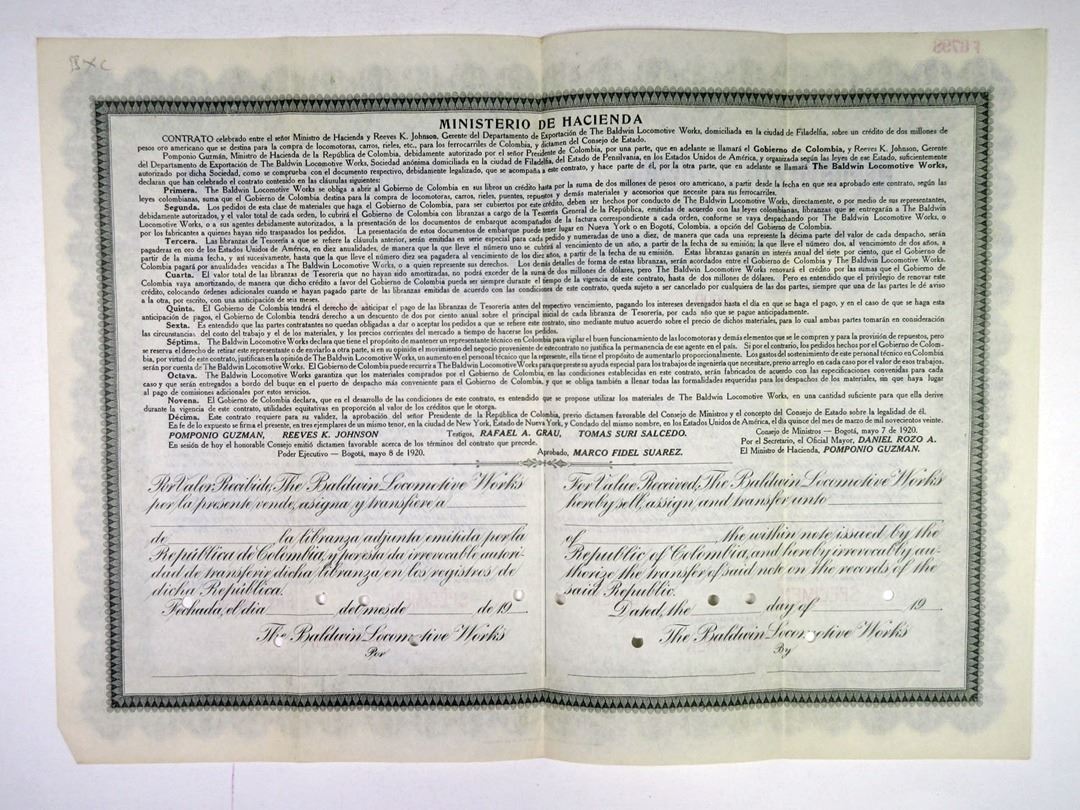 F 0798
MINISTERIO DE HACIENDA
CONTRATO celebrado entre el señor Ministro de Hacienda y Reeves K. Johnson, Gerente del Departamento de Exportación de The Baldwin Locomotive Works, domiciliada en la ciudad de Filadelfia, sobre un crédito de dos millones de
pesos oro americano que se destina para la compra de locomotoras, carros, rieles, etc., para los ferrocarriles de Colombia, y dictamen del Consejo de Estado.
Pomponio Guzmán, Ministro de Hacienda de la República de Colombia, debidamente autorizado por el señor Presidente de Colombia, por una parte, que en adelante se llamará el Gobierno de Colombia, y Reeves K. Johnson, Gerente
del Departamento de Exportación de The Baldwin Locomotive Works, Sociedad anónima domiciliada en la ciudad de Filadelfia, del Estado de Pensilvania, en los Estados Unidos de América, y organizada según las leyes de ese Estado, suficientemente
autorizado por dicha Sociedad, como se comprueba con el documento respectivo, debidamente legalizado, que se acompaña a este contrato, y hace parte de él, por la otra parte, que en adelante se llamará The Baldwin Locomotive Works,
declaran que han celebrado el contrato contenido en las cláusulas siguientes:
Primera. The Baldwin Locomotive Works se obliga a abrir al Gobierno de Colombia en sus libros un crédito hasta por la suma de dos millones de pesos oro americano, a partir desde la fecha en que sea aprobado este contrato, según las
leyes colombianas, suma que el Gobierno de Colombia destina para la compra de locomotoras, carros, rieles, puentes, repuestos y demás materiales y accesorios que necesite para sus ferrocarriles.
Segunda. Los pedidos de esta clase de materiales que haga el Gobierno de Colombia, para ser cubiertos por este crédito, deben ser hechos por conducto de The Baldwin Locomotive Works, directamente, o por medio de sus representantes,
debidamente autorizados, y el valor total de cada orden, lo cubrirá el Gobierno de Colombia con libranzas a cargo de la Tesorería General de la República, emitidas de acuerdo con las leyes colombianas, libranzas que se entregarán a The Baldwin
Locomotive Works, o a sus agentes debidamente autorizados, a la presentación de los documentos de embarque acompañados de la factura correspondiente a cada orden, conforme se vaya despachando por The Baldwin Locomotive Works, o
por los fabricantes a quienes hayan sido traspasados los pedidos. La presentación de estos documentos de embarque puede tener lugar en Nueva York o en Bogotá, Colombia, a opción del Gobierno de Colombia.
Tercera. Las libranzas de Tesorería a que se refiere la cláusula anterior, serán emitidas en serie especial para cada pedido y numeradas de uno a diez, de manera que cada una represente la décima parte del valor de cada despacho, serán
pagaderas en oro de los Estados Unidos de América, en diez anualidades, de manera que la que lleve el número uno se cubrirá al vencimiento de un año, a partir de la fecha de su emisión; la que lleve el número dos, al vencimiento de dos años, a
partir de la misma fecha, y así sucesivamente, hasta que la que lleve el número diez sea pagadera al vencimiento de los diez años, a partir de la fecha de su emisión. Estas libranzas ganarán un interés anual del siete por ciento, que el Gobierno de
Colombia pagará por anualidades vencidas a The Baldwin Locomotive Works, o a quien represente sus derechos. Los demás detalles de forma de estas libranzas, serán acordados entre el Gobierno de Colombia y The Baldwin Locomotive Works.
Cuarta. El valor total de las libranzas de Tesorería que no hayan sido amortizadas, no podrá exceder de la suma de dos millones de dólares, pero The Baldwin Locomotive Works renovará el crédito por las sumas que el Gobierno de
Colombia vaya amortizando, de manera que dicho crédito a favor del Gobierno de Colombia pueda ser siempre durante el tiempo de la vigencia de este contrato, hasta de dos millones de dólares. Pero es entendido que el privilegio de renovar este
crédito, colocando órdenes adicionales cuando se hayan pagado parte de las libranzas emitidas de acuerdo con las condiciones de este contrato, queda sujeto a ser cancelado por cualquiera de las dos partes, siempre que una de las partes le dé aviso
a la otra, por escrito, con una anticipación de seis meses.
Quinta. El Gobierno de Colombia tendrá el derecho de anticipar el pago de las libranzas de Tesorería antes del respectivo vencimiento, pagando los intereses devengados hasta el día en que se haga el pago, y en el caso de que se haga esta
anticipación de pagos, el Gobierno de Colombia tendrá derecho a un descuento de dos por ciento anual sobre el principal inicial de cada libranza de Tesorería, por cada año que se pague anticipadamente.
Sexta. Es entendido que las partes contratantes no quedan obligadas a dar o aceptar los pedidos a que se refiere este contrato, sino mediante mutuo acuerdo sobre el precio de dichos materiales, para lo cual ambas partes tomarán en consideración
las circunstancias, del costo del trabajo y el de los materiales, y los precios corrientes del mercado a tiempo de hacerse los pedidos.
Séptima. The Baldwin Locomotive Works declara que tiene el propósito de mantener un representante técnico en Colombia para vigilar el buen funcionamiento de las locomotoras y demás elementos que se le compren y para la provisión de repuestos, pero
se reserva el derecho de retirar este representante o de enviarlo a otra parte, si en su opinión el movimiento del negocio proveniente de este contrato no justifica la permanencia de ese agente en el país. Si por el contrario, los pedidos hechos por el Gobierno de Colom-
bia, por virtud de este contrato, justifican en la opinión de The Baldwin Locomotive Works, un aumento en el personal técnico que la represente, ella tiene el propósito de aumentarlo proporcionalmente. Los gastos del sostenimiento de este personal técnico en Colombia
serán por cuenta de The Baldwin Locomotive Works. El Gobierno de Colombia puede recurrir a The Baldwin Locomotive Works para que preste su ayuda especial para los trabajos de ingeniería que necesitare, previo arreglo en cada caso por el valor de esos trabajos.
Octava. The Baldwin Locomotive Works garantiza que los materiales comprados por el Gobierno de Colombia, en las condiciones establecidas en este contrato, serán fabricados de acuerdo con las especificaciones convenidas para cada
caso y que serán entregados a bordo del buque en el puerto de despacho más conveniente para el Gobierno de Colombia, y que se obliga también a llenar todas las formalidades requeridas para los despachos de los materiales, sin que haya lugar
al pago de comisiones adicionales por estos servicios.
Novena. El Gobierno de Colombia declara, que en el desarrollo de las condiciones de este contrato, es entendido que se propone utilizar los materiales de The Baldwin Locomotive Works, en una cantidad suficiente para que ella derive
durante la vigencia de este contrato, utilidades equitativas en proporción al valor de los créditos que le otorga.
Décima. Este contrato requiere para su validez, la aprobación del señor Presidente de la República de Colombia, previo dictamen favorable del Consejo de Ministros y el concepto del Consejo de Estado sobre la legalidad de él.
En fe de lo expuesto se firma el presente, en tres ejemplares de un mismo tenor, en la ciudad de New York, Estado de Nueva York, y Condado del mismo nombre, en los Estados Unidos de América, el día quince del mes de marzo de mil novecientos veinte.
POMPONIO GUZMAN, REEVES K. JOHNSON Testigos, RAFAEL A. GRAU, TOMAS SURI SALCEDO. Consejo de Ministros — Bogotá, mayo 7 de 1920.
En sesión de hoy el honorable Consejo emitió dictamen favorable acerca de los términos del contrato que precede. Por el Secretario, el Oficial Mayor, DANIEL ROZO A.
Poder Ejecutivo — Bogotá, mayo 8 de 1920. Aprobado, MARCO FIDEL SUAREZ. El Ministro de Hacienda, POMPONIO GUZMAN.
Por Valor Recibido, The Baldwin Locomotive Works
por la presente vende, asigna y transfiere a
de la libranza adjunta emitida por la
República de Colombia, y por esta da irrevocable autori-
dad de transferir dicha libranza en los registros de
dicha República.
Fechada, el día del mes de de 19
The Baldwin Locomotive Works
Por
For Value Received, The Baldwin Locomotive Works
hereby sell, assign and transfer unto
of , the within note issued by the
Republic of Colombia, and hereby irrevocably au-
thorize the transfer of said note on the records of the
said Republic.
Dated, the day of 19
The Baldwin Locomotive Works
By